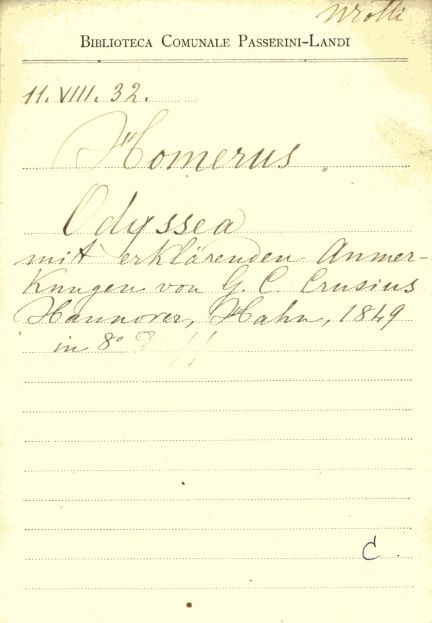 BIBLIOTECA COMUNALE PASSERINI-LANDI
11. VIII. 32.
Homerus
Odyssea
mit erklärenden Anmer-
kungen von G. C. Crusius
Hannover, Hahn, 1849
in 8°
C.